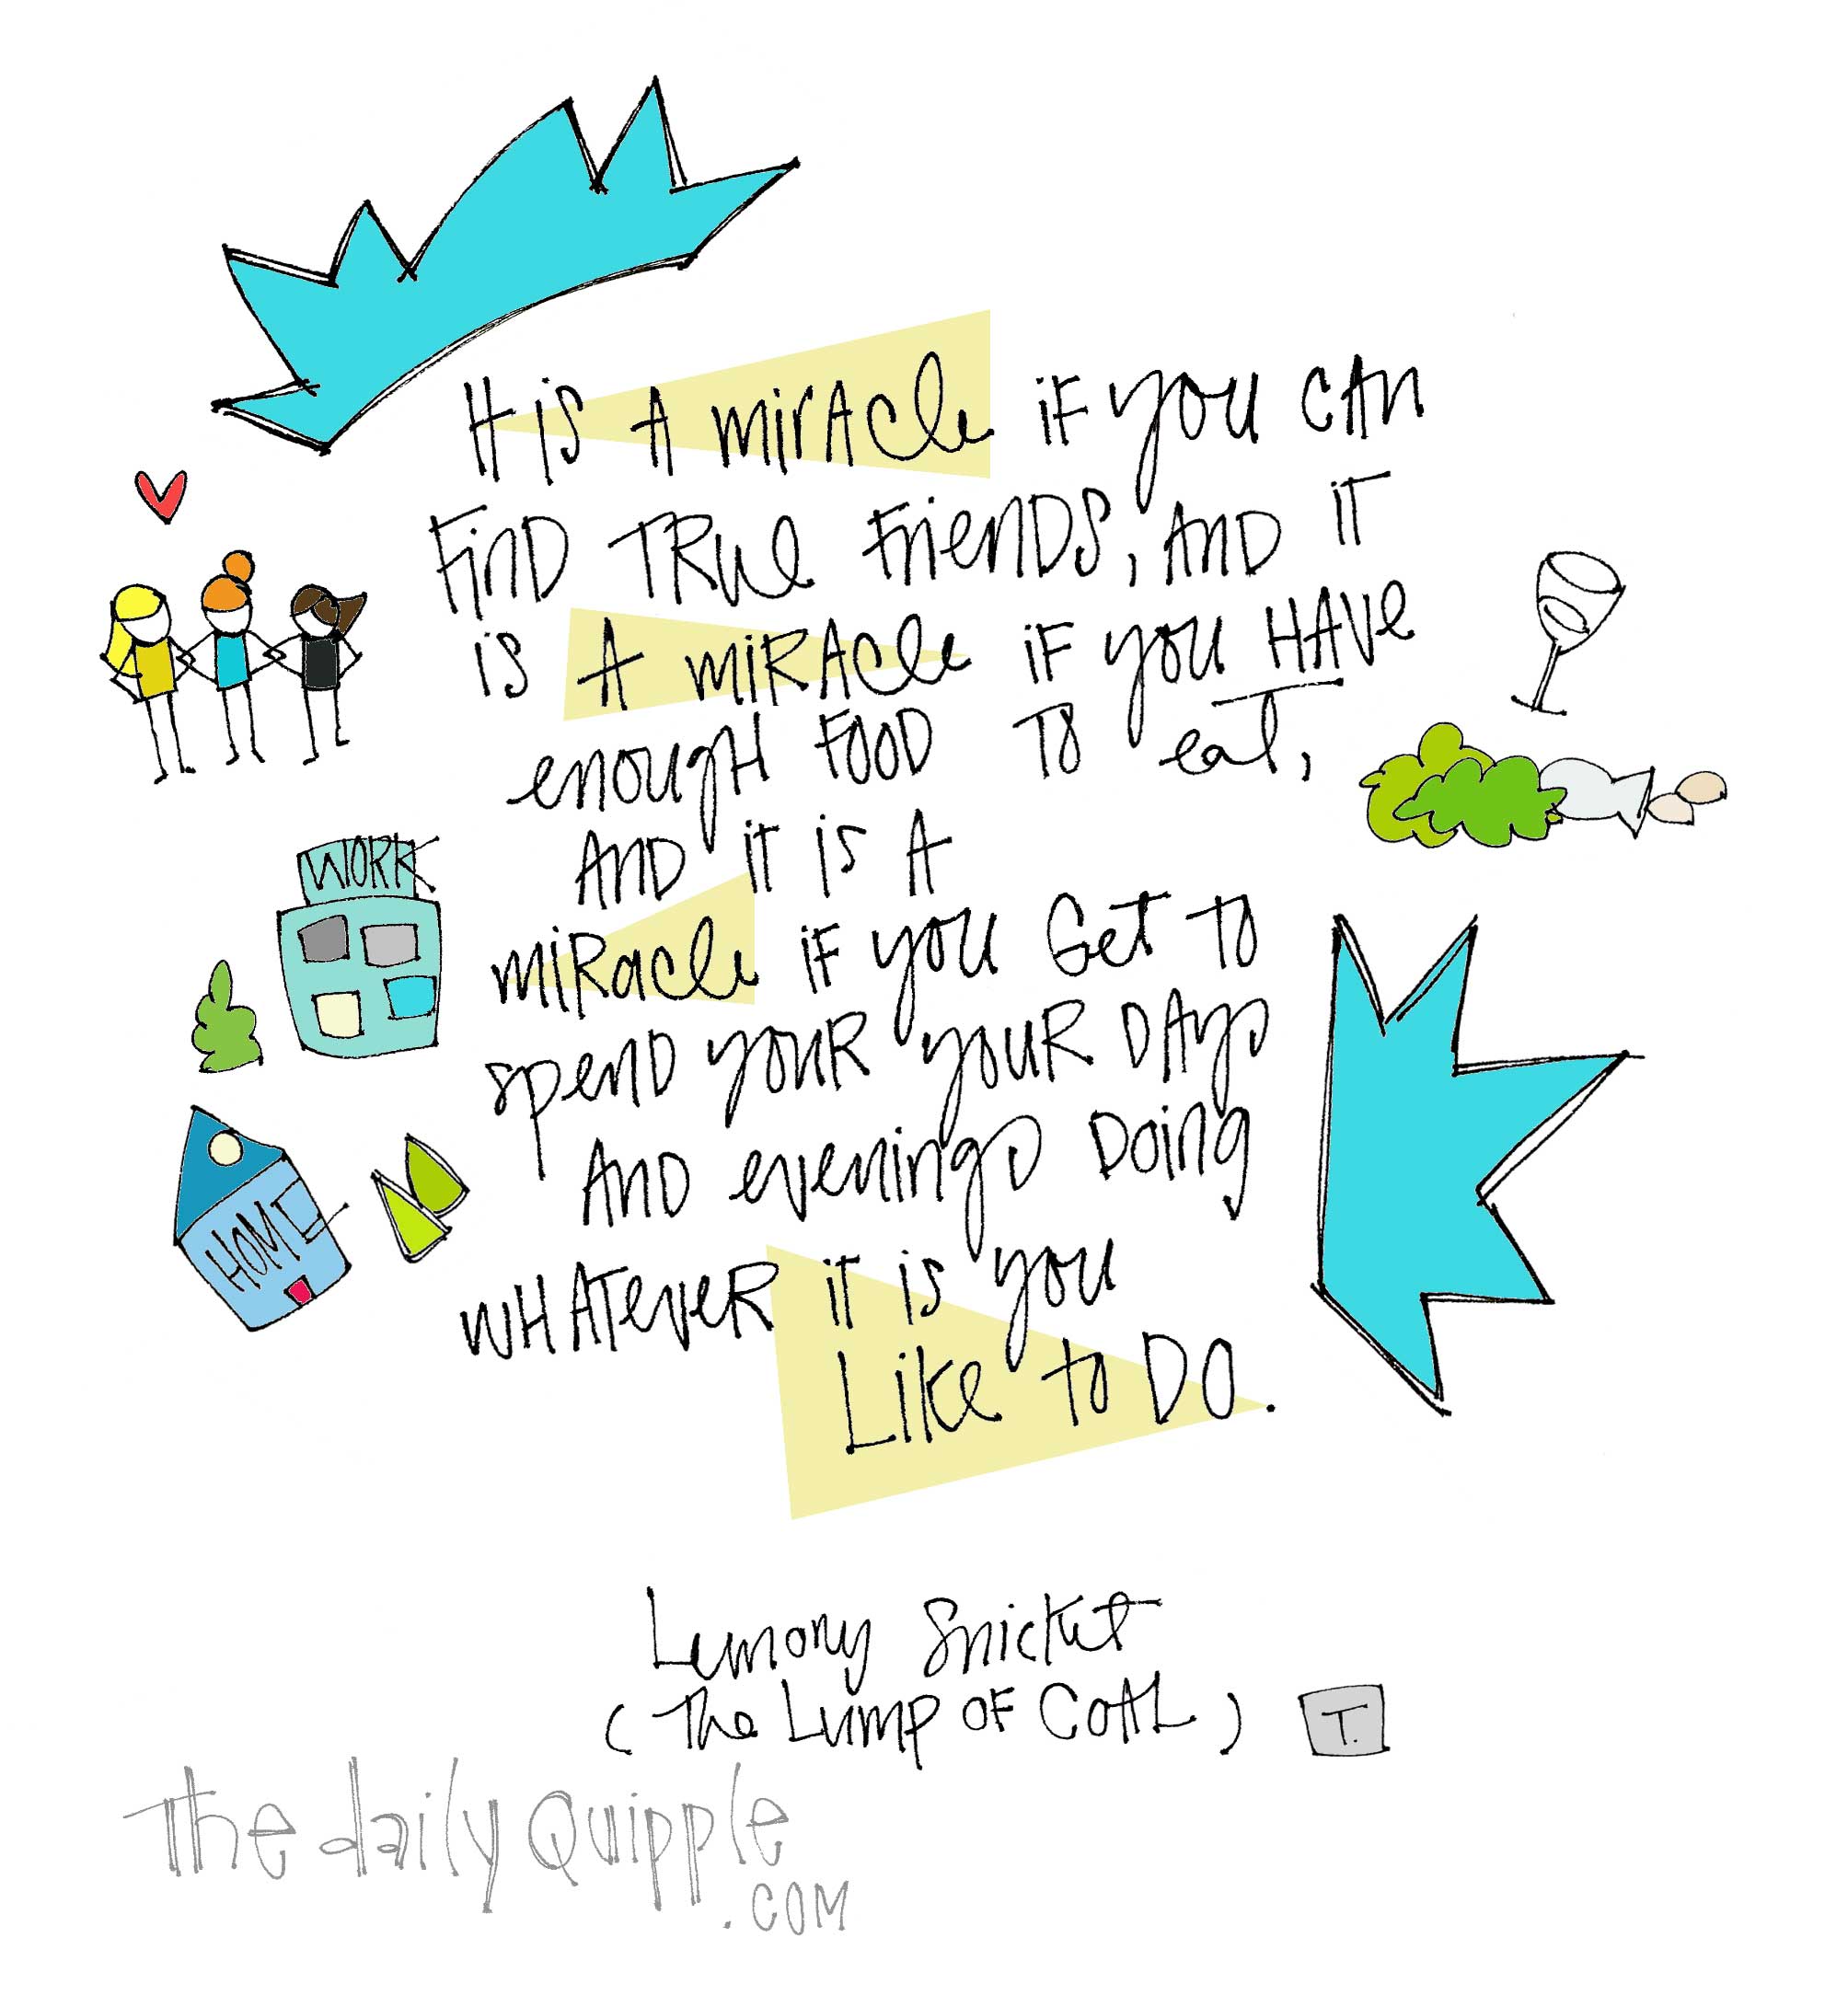 It is A miracle if you can
Find True Friends, and it
is A miracle if you have
enough food to eat,
and it is A
miracle if you Get to
spend your your days
and evenings doing
whatever it is you
Like to do.
WORK
HOME
Lemony Snicket
(The Lump of Coal)
T.
The daily Quipple
.com